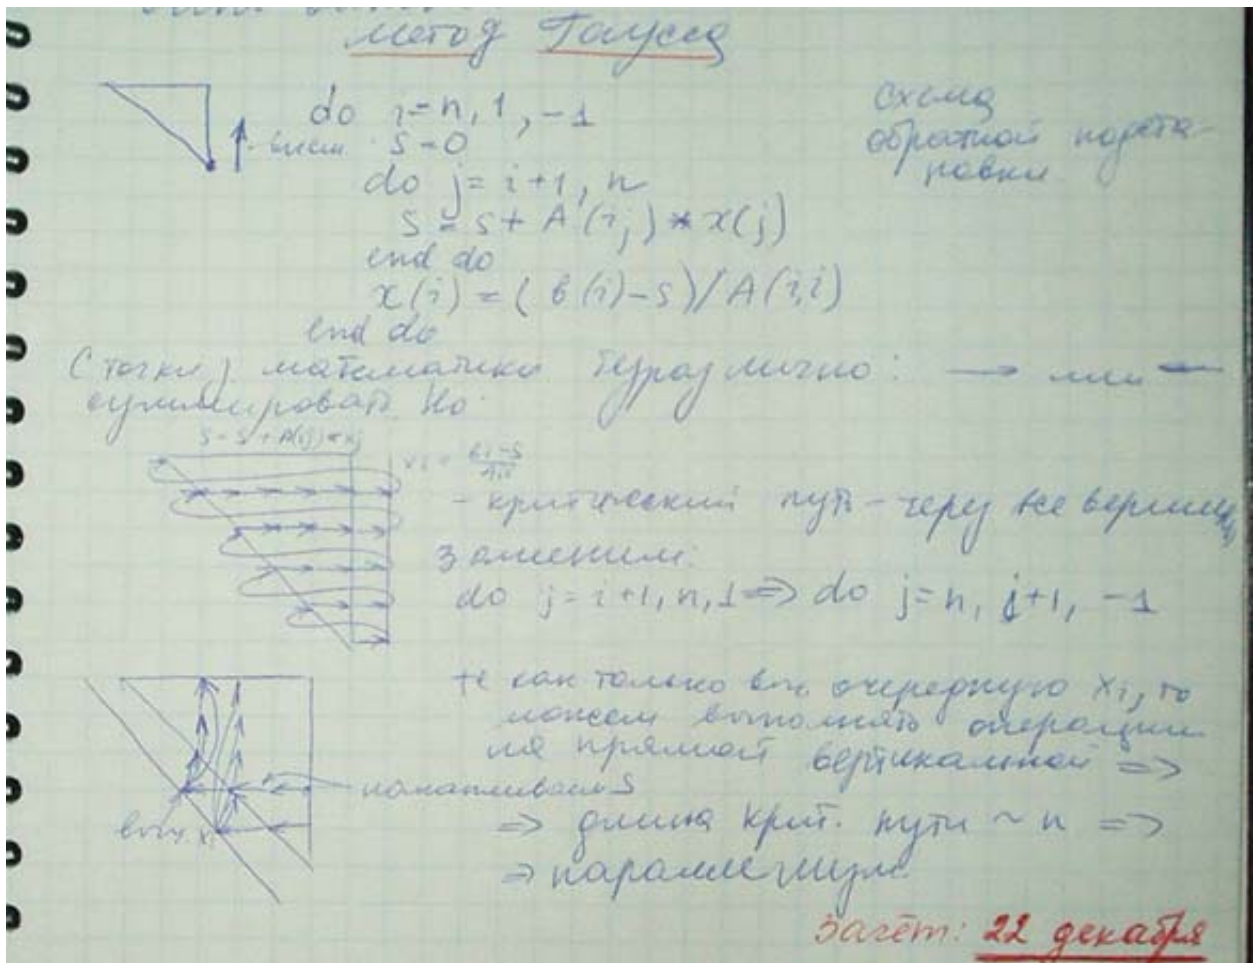 метод Гаусса
do i=n, 1, -1
S=0
do j=i+1, n
S=S+A(i,j)*x(j)
end do
x(i)=(b(i)-S)/A(i,i)
end do
схема
обратной подста-
новки
С точки з. математики безразлично: → или ←
суммировать. Но
S=S+A(ij)*xj
xi = bi-S / Aii
- критический путь - через все вершины
Заменим:
do j=i+1, n, 1 => do j=n, j+1, -1
те как только выч. очередную xi, то
можем выполнять операции
на прямой вертикальной =>
накапливаем S
выч. xi
=> длина крит. пути ~ n =>
=> параллелизм
Зачёт: 22 декабря